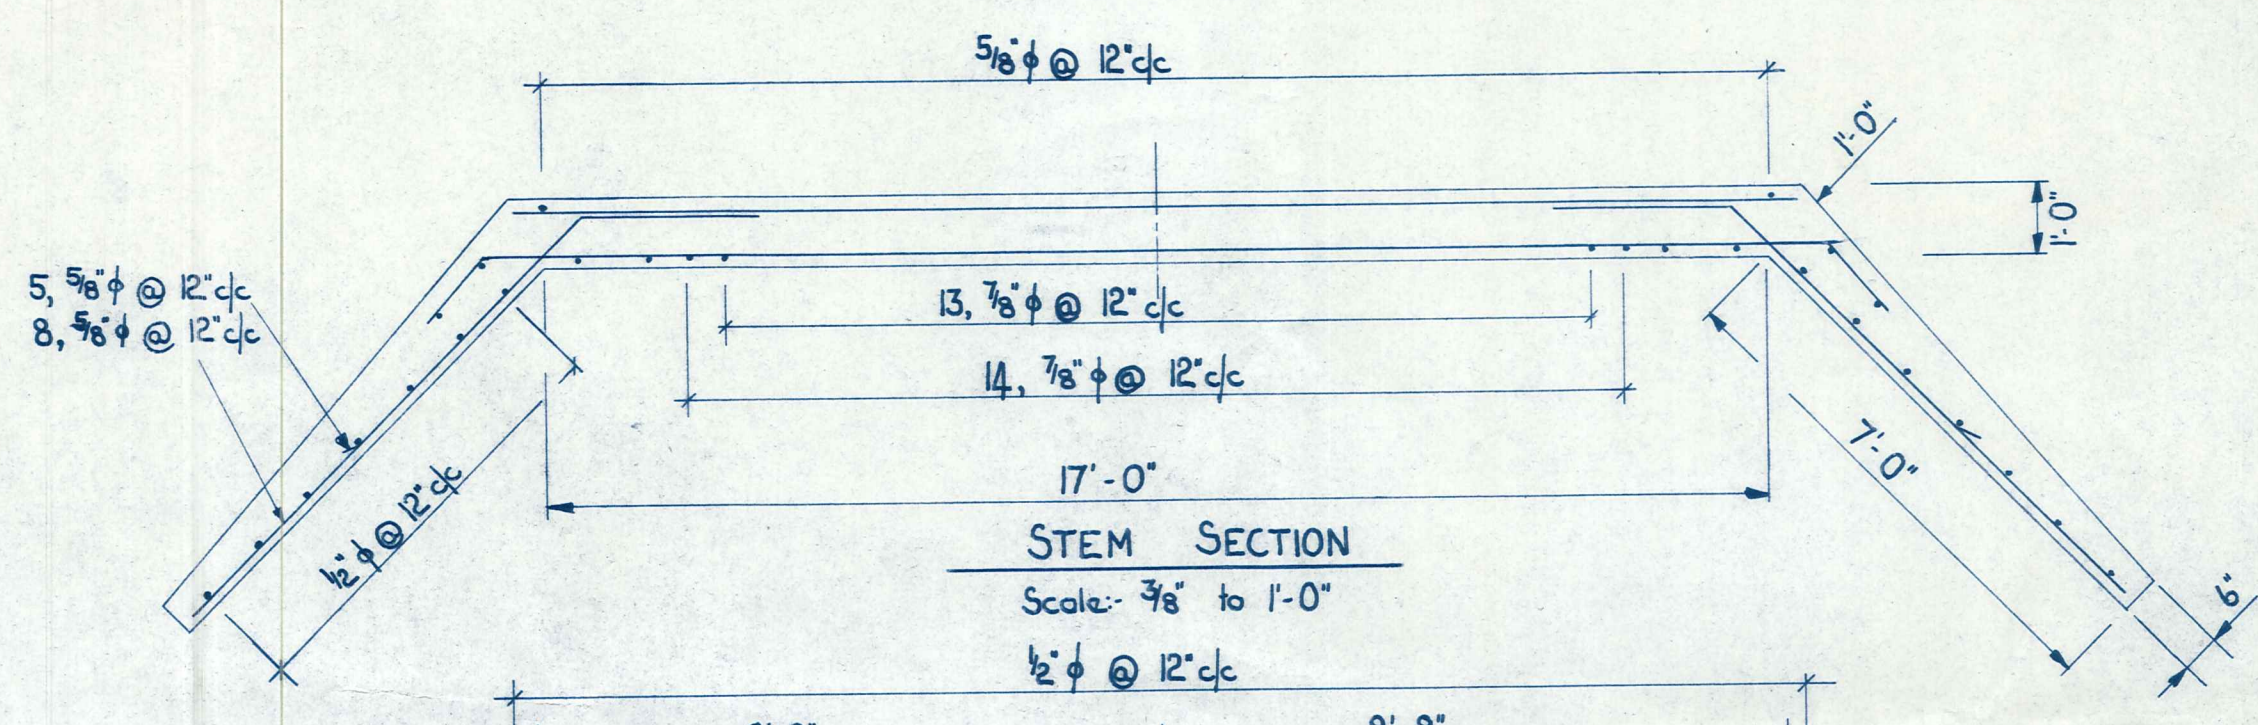 5/8" ϕ @ 12" c/c
1'-0"
1'-0"
5, 5/8" ϕ @ 12" c/c
8, 5/8" ϕ @ 12" c/c
13, 7/8" ϕ @ 12" c/c
14, 7/8" ϕ @ 12" c/c
7'-0"
1/2" ϕ @ 12" c/c
17'-0"
STEM SECTION
Scale:- 3/8" to 1'-0"
6"
1/2" ϕ @ 12" c/c